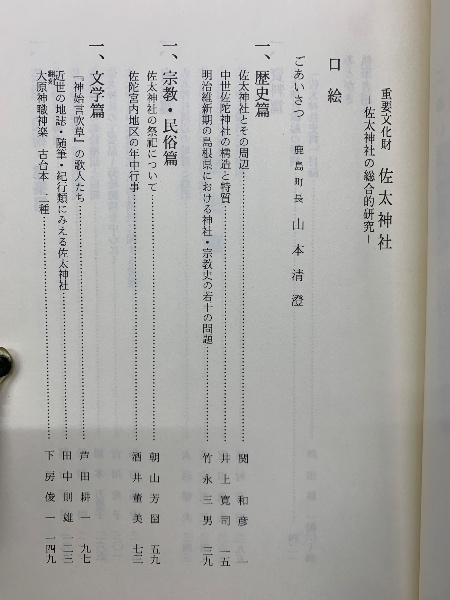 重要文化財 佐太神社
―佐太神社の総合的研究―
口絵
ごあいさつ 鹿島町長 山本清澄
一、歴史篇
佐太神社とその周辺 関和彦
中世佐陀神社の構造と特質 井上寛司 一五
明治維新期の島根県における神社・宗教史の若干の問題 竹永三男 三九
一、宗教・民俗篇
佐太神社の祭祀について 朝山芳圀 五九
佐陀宮内地区の年中行事 酒井董美 七三
一、文学篇
『神始言吹草』の歌人たち 芦田耕一 九七
近世の地誌・随筆・紀行類にみえる佐太神社 田中則雄 一二三
翻刻 大原神職神楽 古台本 二種 下房俊一 一四九